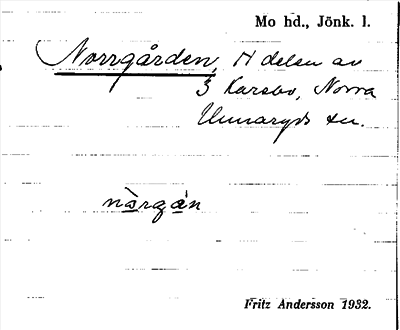 Mo hd., Jönk. l.
Norrgården, N delen av
3 Karsbo, Norra
Unnaryds sn.
nàrgán
Fritz Andersson 1932.